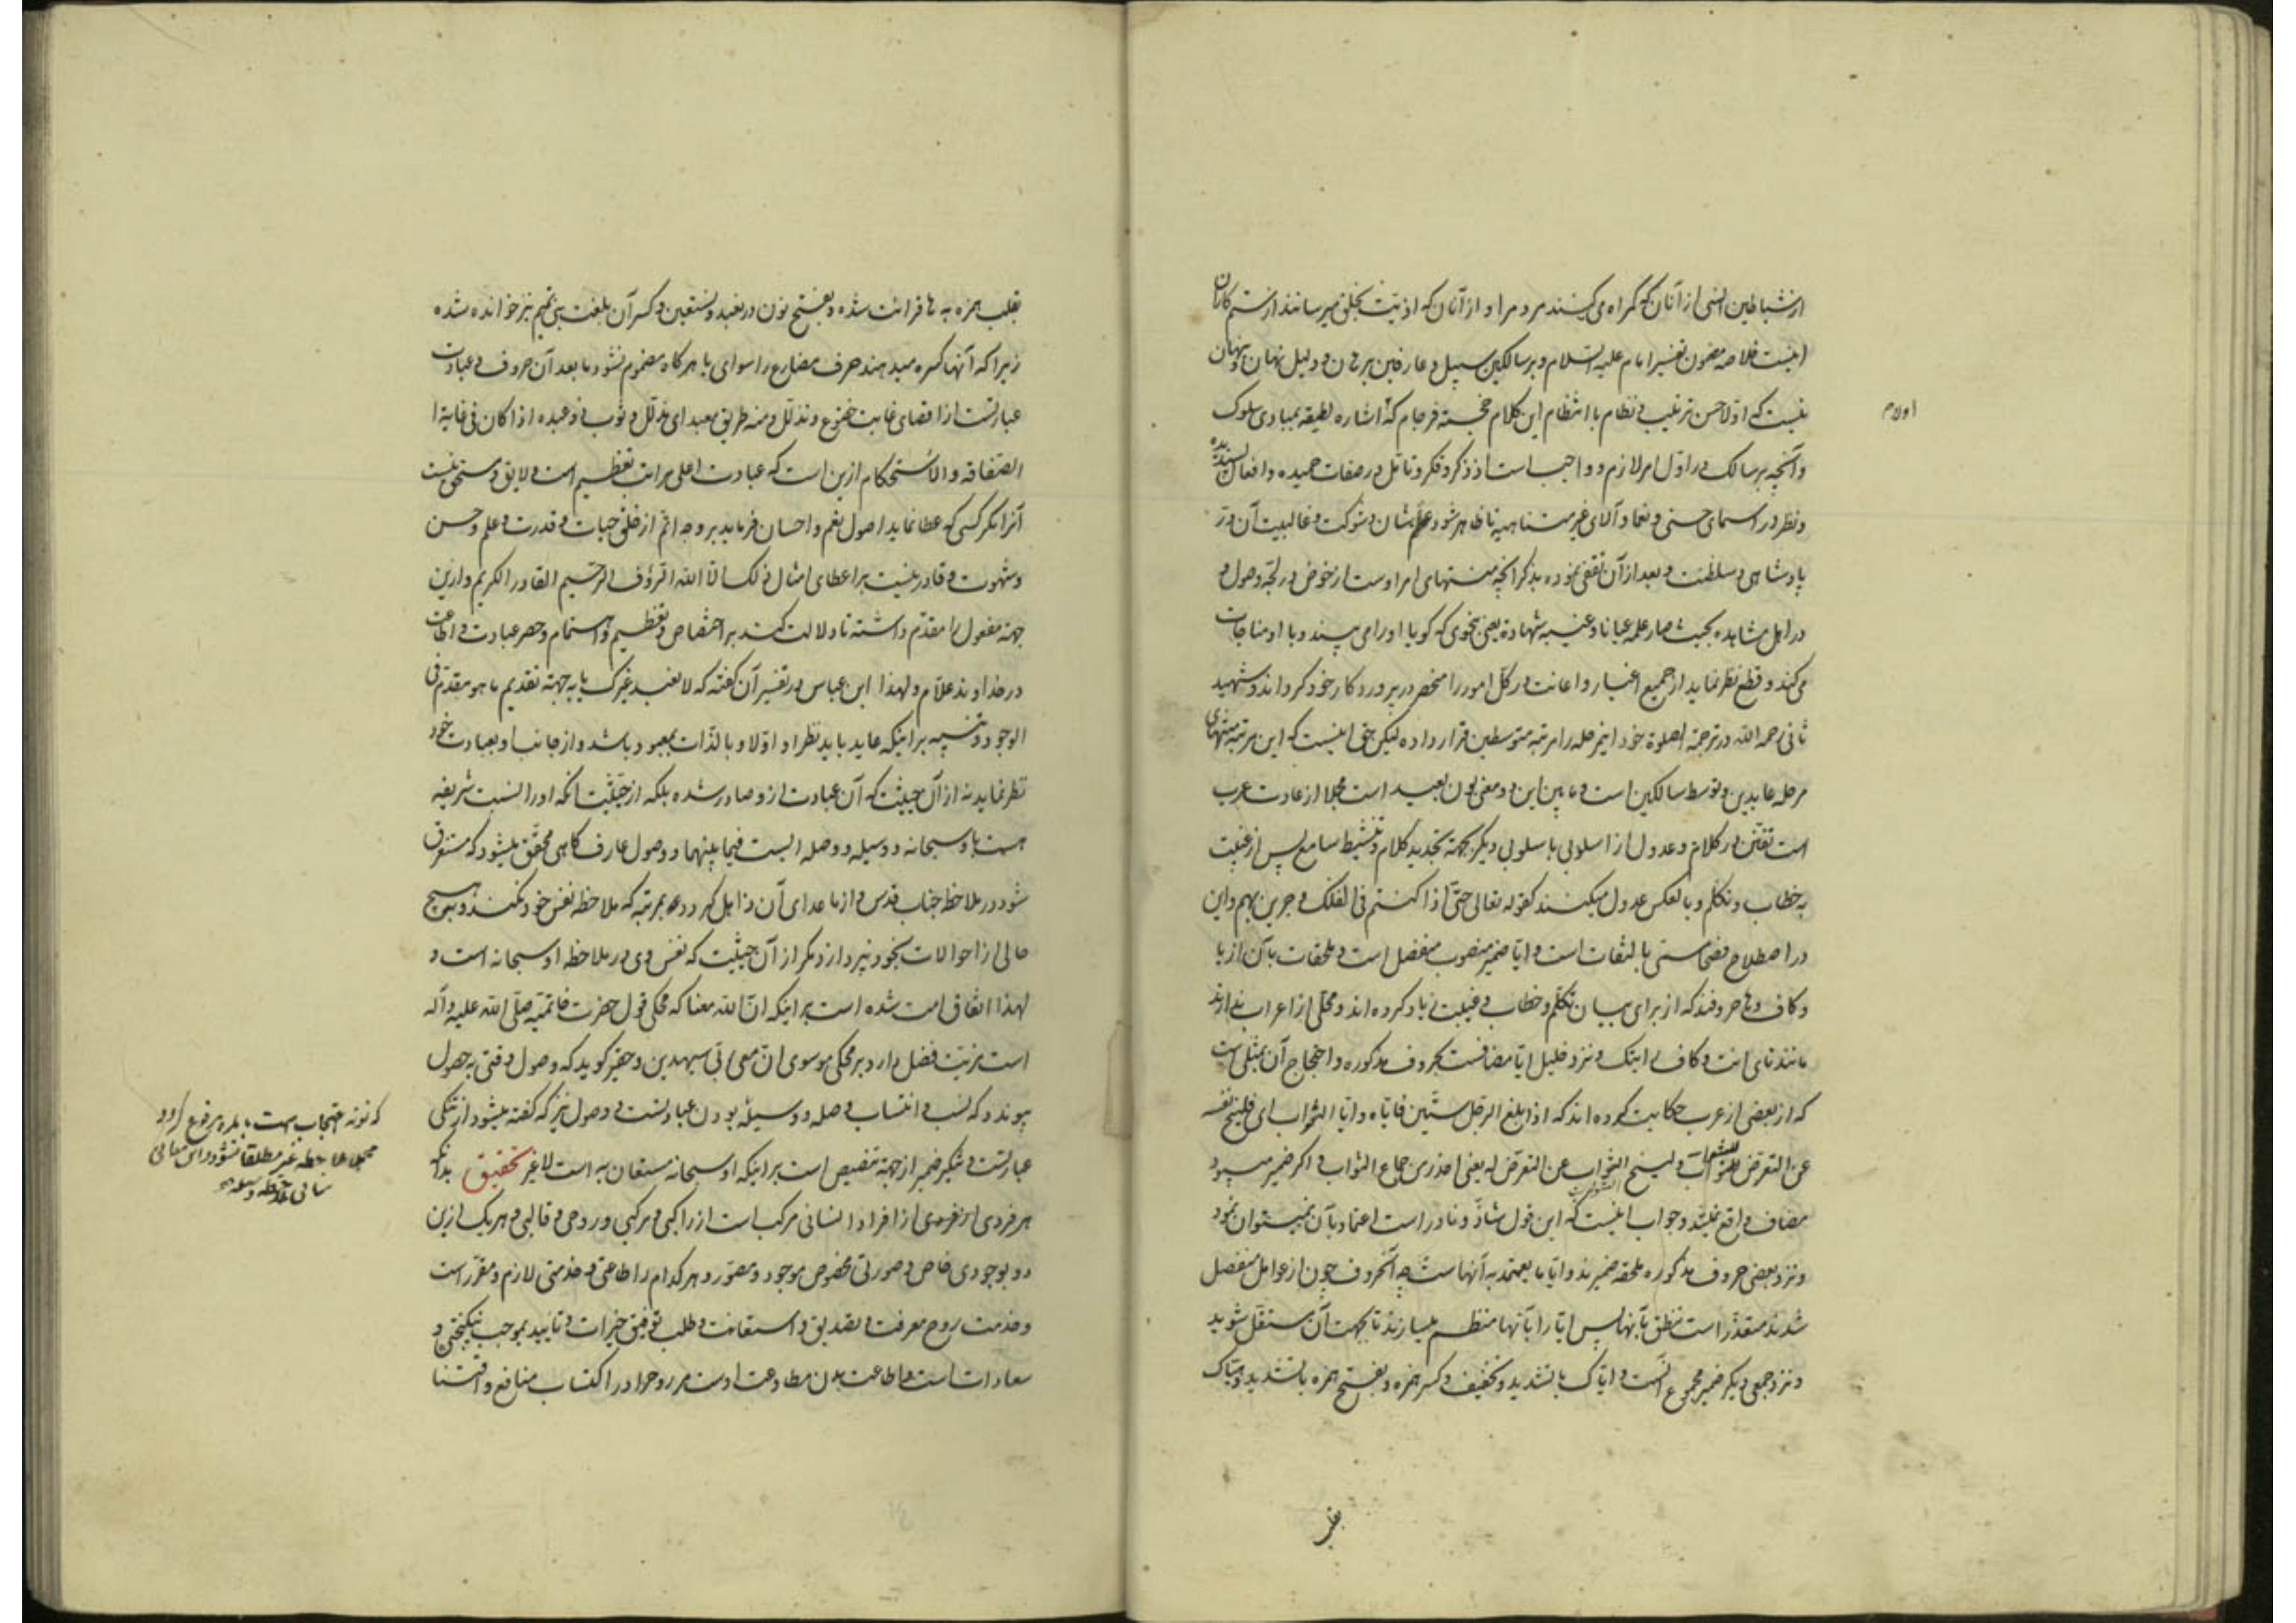 از شیاطین انسی از آنان که گمراه می کنند مردم را و از آنان که اذیت بخلق میرسانند از ستم کاران
اینست خلاصه مضمون تفسیر امام علیه السلام و بر سالکین سبیل و عارفین برهان و دلیل نهان و پنهان
نیست که اولا حسن ترتیب و نظام با انتظام این کلام خجسته فرجام که اشاره لطیفه بمبادی سلوک
اولا م
و آنچه بر سالک در اول امر لازم و واجب است از ذکر و فکر و تامل در صفات حمیده و افعال پسندیده
و نظر در اسمای حسنی و نعما و آلای غیر متناهیه تا ظاهر شود عظم شان و شوکت و غالبیت آن در
پادشاهی و سلطنت و بعد از آن نموده بذکر آنچه منتهای امر اوست از خوض در لجه وصول و
در اهل مشاهده بحیث صار علمه عیانا و غیبه شهادة یعنی بنحوی که گویا او را می بیند و با او مناجات
می کند و قطع نظر نماید از جمیع اغیار و اعانت در کل امور را منحصر در پروردگار خود گرداند و شهید
ثانی رحمه الله در ترجمة الصلوة خود اینمرحله را مرتبه متوسطین قرار داده لیکن حق اینست که این مرتبه منتهای
مرحله عابدین و توسط سالکین است و مابین این دو معنی بون بعید است مجملا از عادت عرب
است تفنن در کلام و عدول از اسلوبی باسلوبی دیگر بجهة تجدید کلام و تنشیط سامع پس از غیبت
به خطاب و تکلم و بالعکس عدول میکنند کقوله تعالی حتی اذا کنتم فی الفلک و جرین بهم و این
در اصطلاح فصحا مسمی بالتفات است و ایا ضمیر منصوب منفصل است و ملحقات بآن از یا
و کاف و ها حروفند که از برای بیان تکلم و خطاب و غیبت زیاد کرده اند و محلی از اعراب ندارند
مانند تای انت و کاف رایتک و نزد خلیل ایا مضافست بحروف مذکوره و احتجاج آن بمثلی است
که از بعضی از عرب حکایت کرده اند که اذا بلغ الرجل ستین فایاه و ایا الشواب ای فلینح نفسه
عن التعرض للشواب و لینح الشواب عن التعرض له یعنی احذر من جماع الشواب و اگر ضمیر میبود
مضاف واقع نمیشد و جواب اینست که این قول شاذ و نادر است اعتماد بآن نمیتوان نمود
و نزد بعضی حروف مذکوره ملحقه ضمیرند و ایا ما یعتمد به آنهاست چه آنحروف چون از عوامل منفصل
شدند متعذر است نطق بآنها پس ایا را بآنها منظم میسازند تا بجهت آن مستقل شوید
و نزد جمعی دیگر ضمیر مجموع آنست و ایاک با تشدید و تخفیف و کسر همزه و بفتح همزه با تشدید و هیاک
بقلب
بقلب همزه به ها قرائت شده و بفتح نون در نعبد و نستعین و کسر آن بلغت بنی تمیم نیز خوانده شده
زیرا که آنها کسره میدهند حرف مضارع را سوای یا هر گاه مضموم نشود ما بعد آن حروف و عبادت
عبارتست از اقصای غایت خضوع و تذلل و منه طریق معبد ای مذلل و ثوب ذو عبده اذا کان فی غایة
الصفاقه و الاستحکام ازین است که عبادت اعلی مراتب تعظیم است و لایق و مستحق نیست
آنرا مگر کسی که عطا نماید اصول نعم و احسان فرماید بر وجه اتم از خلق حیات و قدرت و علم و حسن
و شهوت و قادر نیست بر اعطای امثال ذلک الا الله الرؤف الرحیم القادر الکریم و ازین
جهة مفعول را مقدم داشته تا دلالت کند بر اختصاص و تعظیم و اهتمام و حصر عبادت و اطاعت
در خداوند علام و لهذا ابن عباس در تفسیر آن گفته که لا نعبد غیرک یا به جهة تقدیم ما هو مقدم فی
الوجود و تنبیه بر اینکه عابد باید نظر او اولا و بالذات بمعبود باشد و از جانب او بعبادت خود
نظر نماید نه از آن حیثیت که آن عبادت ازو صادر شده بلکه از حیثیت آنکه او را نسبت شریفه
هست باو سبحانه و وسیله و وصله ایست فیما بینهما و وصول عارف گاهی محقق میشود که مستغرق
شود در ملاحظه جناب قدس و از ما عدای آن ذاهل گردد بمرتبه که ملاحظه نفس خود نکند و بهیچ
حالی از احوالات بخود نپردازد مگر از آن حیثیت که نفس وی در ملاحظه او سبحانه است و
لهذا اتفاق امت شده است بر اینکه ان الله معنا که محکی قول حضرت خاتمیه صلی الله علیه و آله
است مزیت فضل دارد بر محکی موسوی ان معی ربی سیهدین و حقیر گوید که وصول وقتی بحصول
پیوندد که نسب و انتساب و صله و وسیله بودن عبادتست و وصول نیز که گفته میشود از تنگی
عبارتست و تکریر ضمیر از جهة تنصیص است بر اینکه او سبحانه مستعان به است لا غیر تحقیق بدانکه
هر فردی از افراد انسانی مرکب است از راکبی و مرکبی و روحی و قالبی و هر یک ازین
دو بوجودی خاص و صورتی مخصوص موجود و مصور و هر کدام را طاعتی و خدمتی لازم و مقرر است
و خدمت روح معرفت و تصدیق و استعانت و طلب توفیق خیرات و تایید بموجب نیکبختی و
سعادات است و اطاعت بدن مطاوعت اوست مر روح را در اکتساب منافع و اقتنا
که نوته احتجاب است بالمره مرفوع گردد
مجملا ملاحظه غیر مطلقا نشود و این معانی